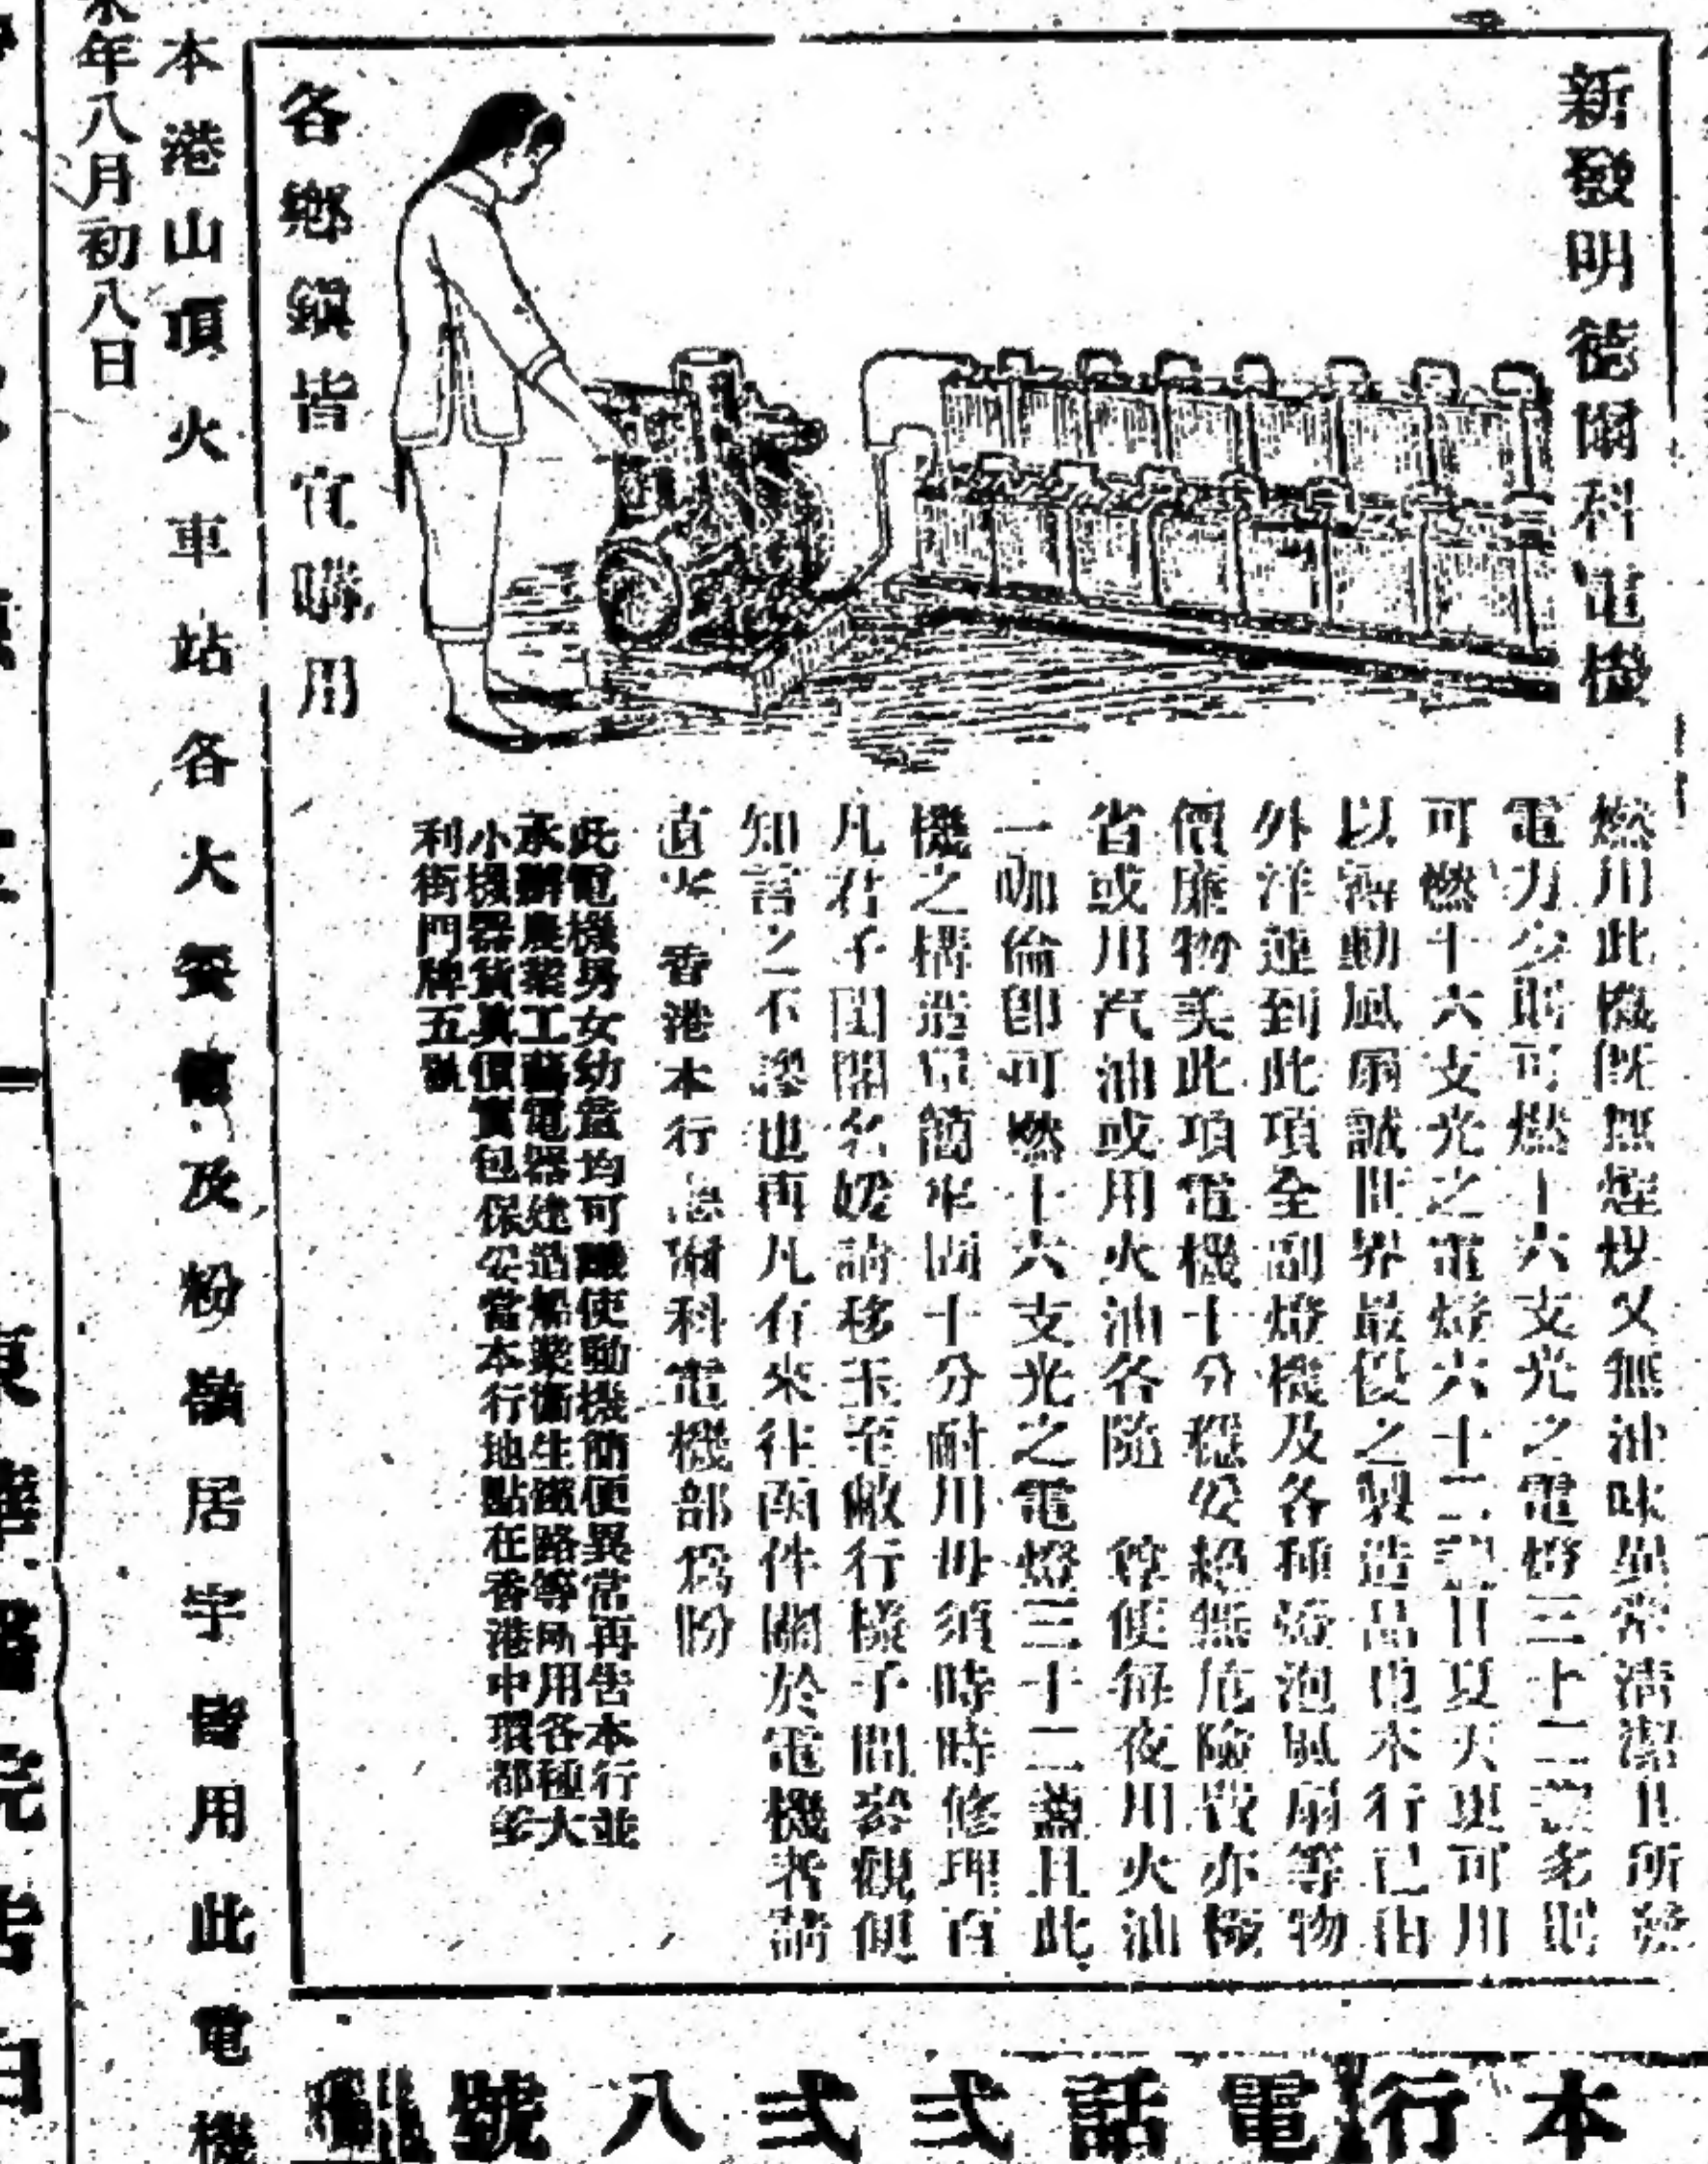 新發明德爾科電機
各鄉鎮皆宜購用
燃用此機旣無煙煤又無油味異常清潔且所發
電力少則可燃十六支光之電燈三十二盞多則
可燃十六支光之電燈六十二盞廿夏天更可用
以轉動風扇誠世界最優之製造品也本行已由
外洋運到此項全副燈機及各種燈泡風扇等物
價廉物美此項電機十分穩妥絕無危險費亦極
省或用汽油或用火油各隨 尊便每夜用火油
一咖倫卽可燃十六支光之電燈三十二盞且此
機之構造單簡牢固十分耐用毋須時時修理百
凡君子閨閣名媛請移玉至敝行樣子間參觀便
知言之不謬也再凡有來往函件關於電機者請
直 香港本行 爾科電機部爲盼
此電機男女幼童均可 使動機簡便異常再告本行並
承辦農業工藝電器建造船業衛生鐵路等所用各種大
小機器貨眞價實包保妥當本行地點在香港中環都爹
利街門牌五號
本行電話弍弍八號
本港山頂火車站各大 及粉嶺居宇皆用此電機
年八月初八日